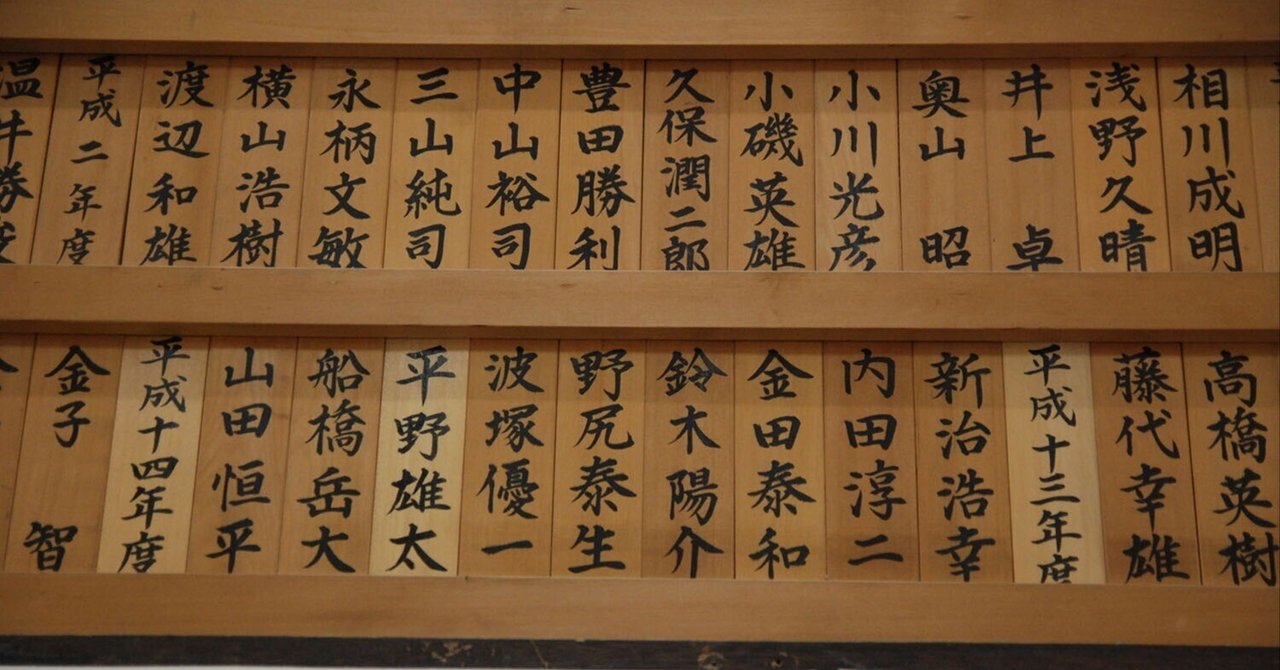 相川成明
浅野久晴
井上卓
奥山昭
小川光彦
小磯英雄
久保潤二郎
豊田勝利
中山裕司
三山純司
永柄文敏
横山浩樹
渡辺和雄
平成二年度
高橋英樹
藤代幸雄
平成十三年度
新治浩幸
内田淳二
金田泰和
鈴木陽介
野尻泰生
波塚優一
平野雄太
船橋岳大
山田恒平
平成十四年度
金子智